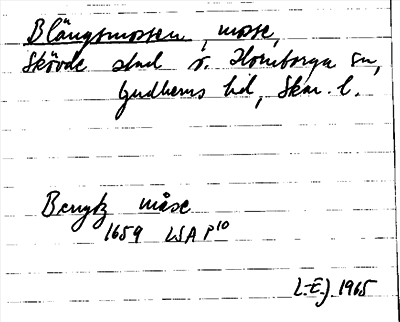 Blängsmossen, mosse,
Skövde stad o. Hornborga sn,
Gudhems hd, Skar. l.
Bengtz måse
1659 LSA P10
L-E.J 1965